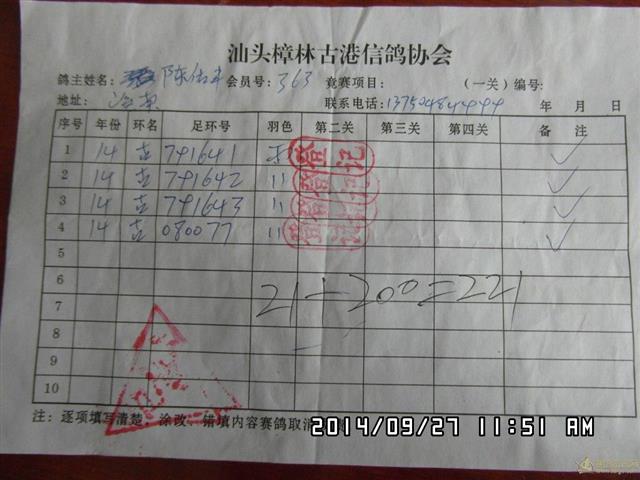 汕头樟林古港信鸽协会
鸽主姓名: 陈 会员号: 363 竞赛项目: (一关) 编号:
地址: 联系电话: 13750484444 年 月 日
序号 年份 环名 足环号 羽色 第二关 第三关 第四关 备 注
1 14 古 791641 登记 ✓
2 14 古 791642 〃 登记 ✓
3 14 古 791643 〃 登记 ✓
4 14 古 080077 〃 登记 ✓
5
6
21+200=221
7
8
9
10
注: 逐项填写清楚, 涂改、错填内容赛鸽取消
2014/09/27 11:51 AM